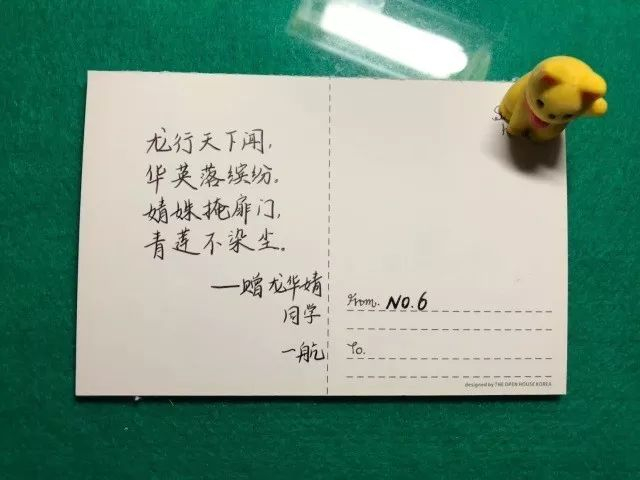 龙行天下闻,
华英落缤纷。
婧姝掩扉门,
青莲不染尘。
——赠龙华婧
同学
一航
From. NO.6
To.
designed by THE OPEN HOUSE KOREA